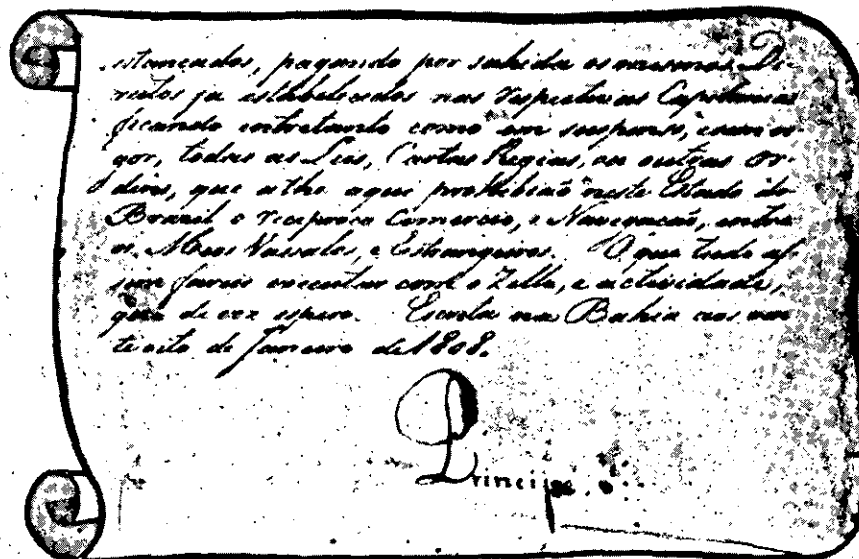 estancados, pagando por sahida os mesmos Di-
reitos ja estabelecidos nas respectivas Capitanias
ficando entretanto como em suspenso, e sem vi-
gor, todas as Leis, Cartas Regias, ou outras Or-
dens, que athe aqui prohibiaõ neste Estado do
Brazil o reciproco Comercio, e Navegacaõ, entre
os Meos Vassalos, e Estrangeiros. O que tudo as-
sim fareis executar com o Zello, e actividade,
que de vez espero. Escrita na Bahia aos vin
te oito de Janeiro de 1808.
Principe